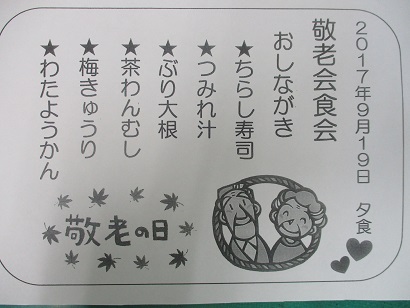 2017年9月19日 夕食
敬老会食会
おしながき
★ちらし寿司
★つみれ汁
★ぶり大根
★茶わんむし
★梅きゅうり
★わたようかん
敬老の日